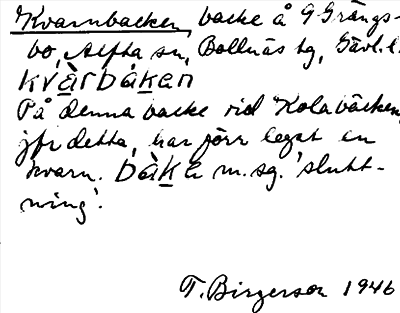 Kvarnbacken, backe å G Grängs-
bo, Alfta sn, Bollnäs tg, Gävl. l.
kvàrbàken
På denna backe vid Kolabäcken,
jfr detta, har förr legat en
kvarn. bàke m. sg. 'slutt-
ning'.
T. Birgerson 1946